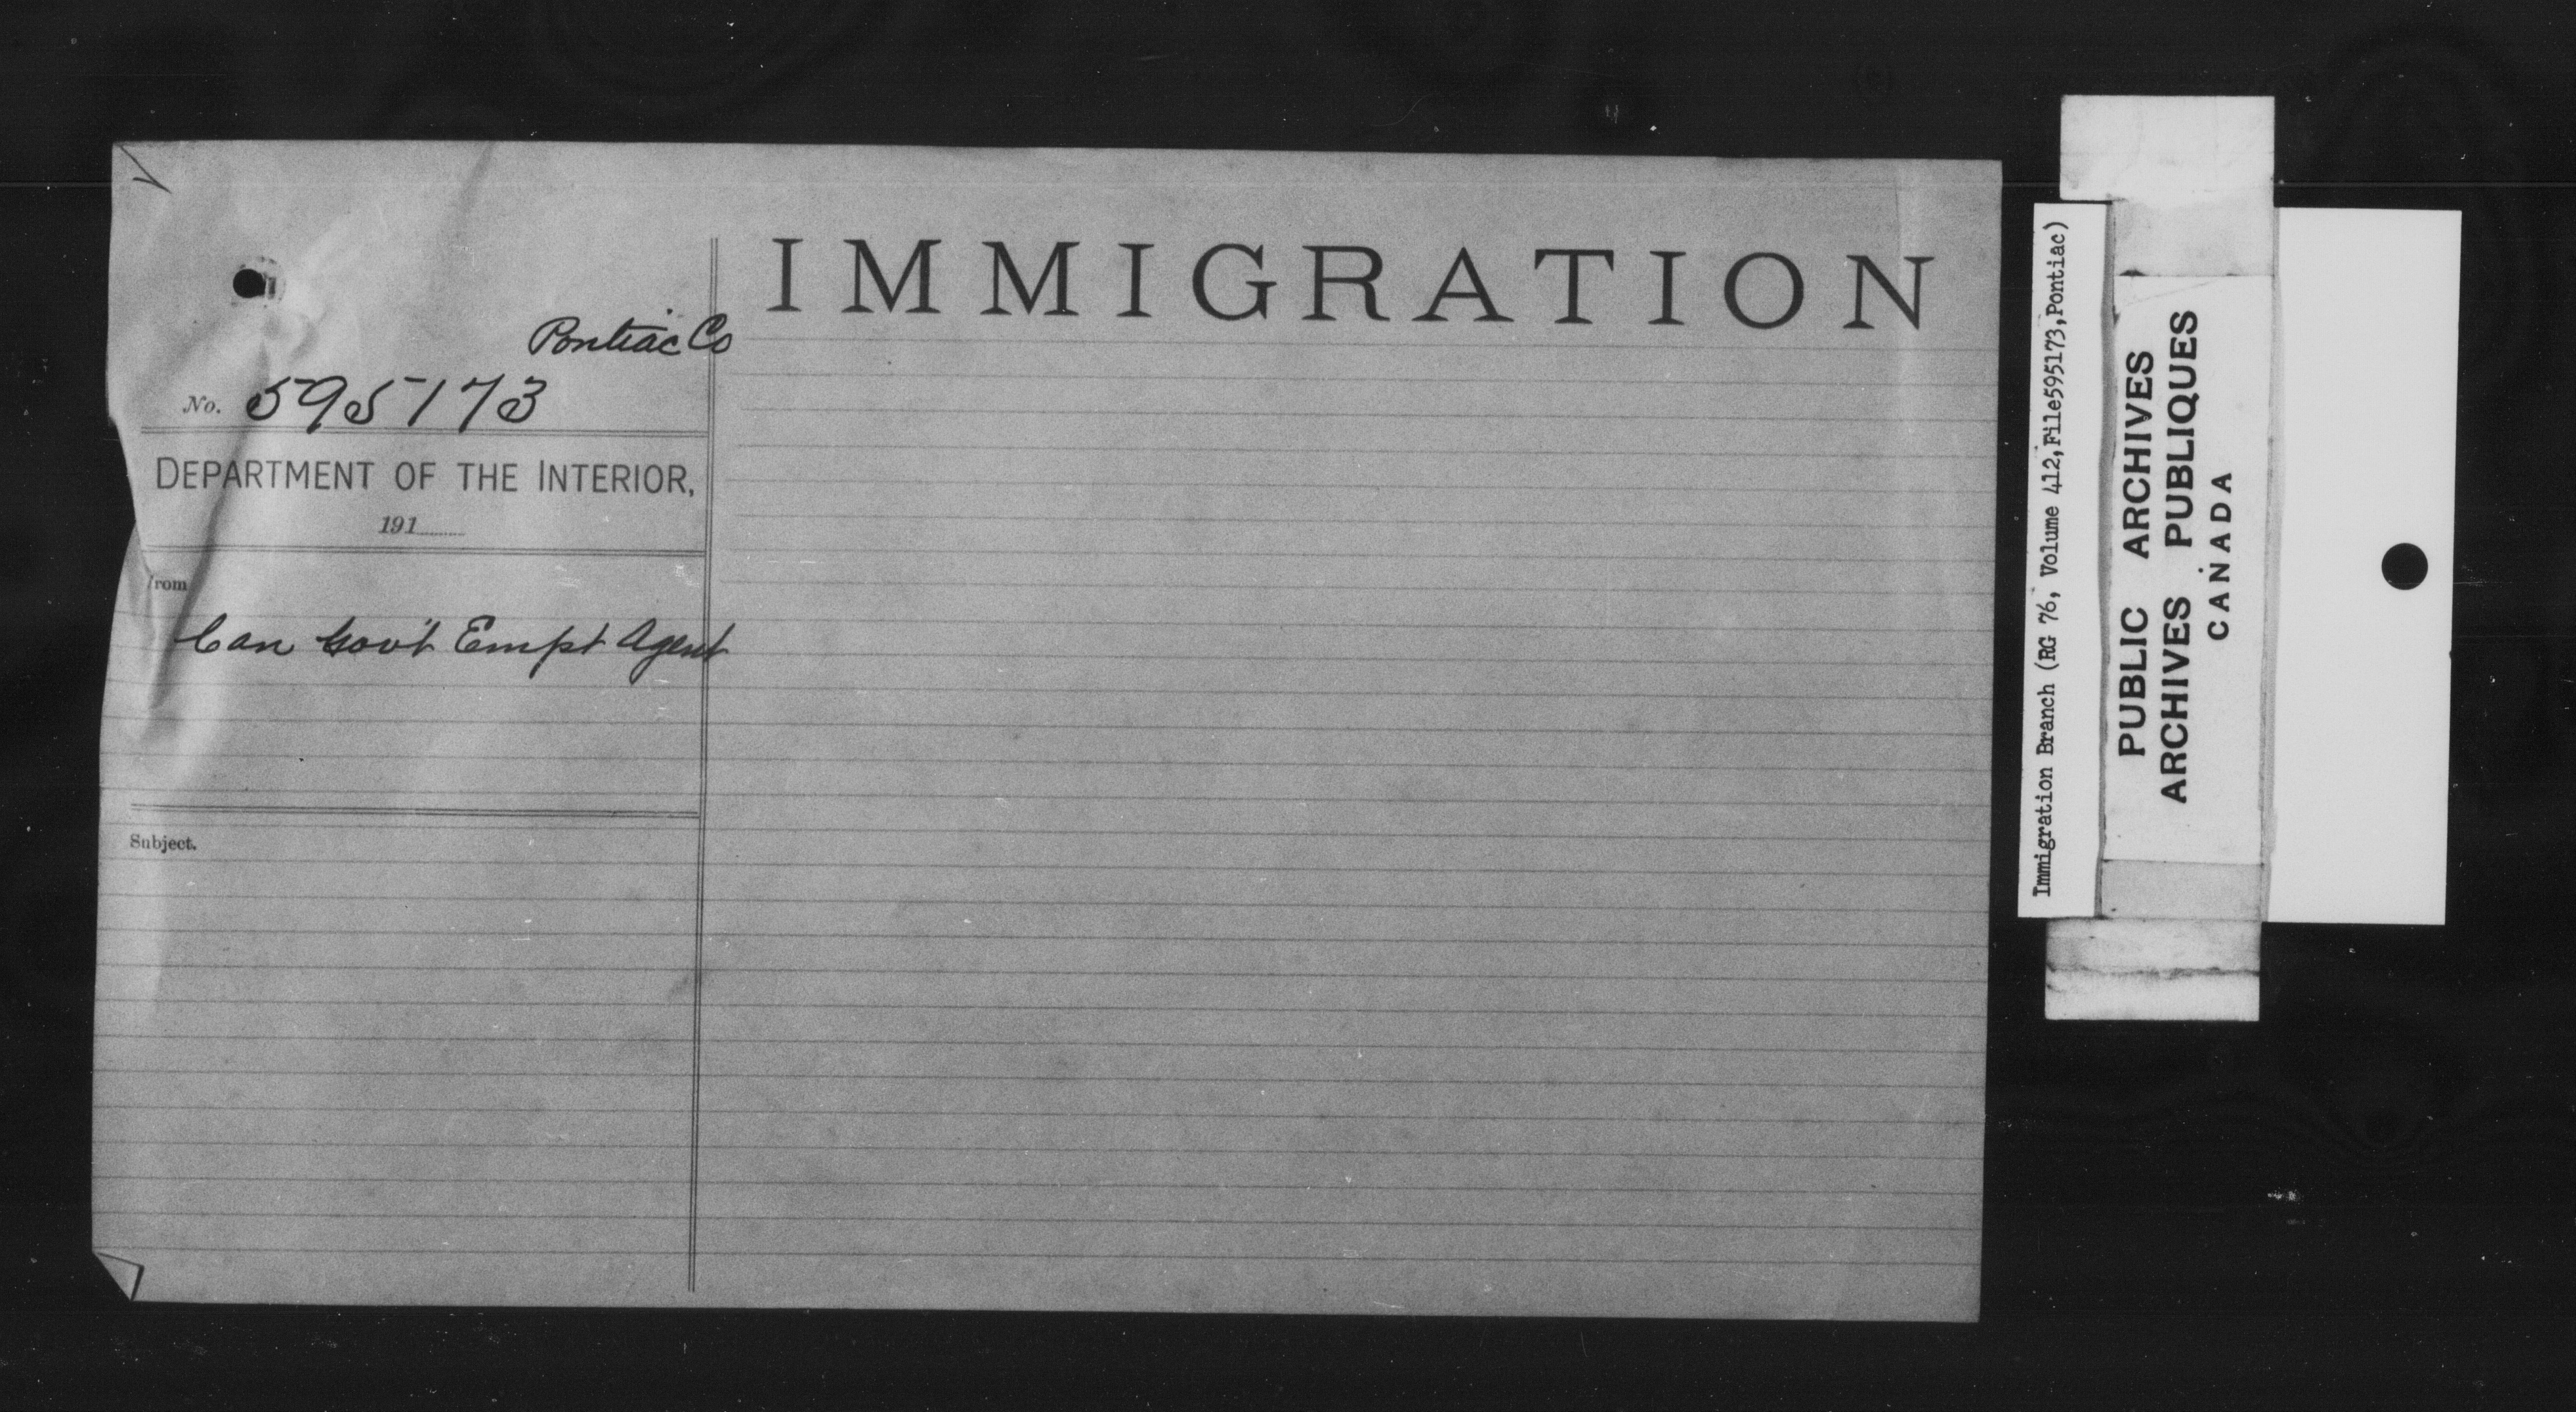 IMMIGRATION
Pontiac Co
No. 595173
DEPARTMENT OF THE INTERIOR,
191
rom
Can Gov't Empt Agent
Subject.
Immigration Branch (RG 76, Volume 412,File595173,Pontiac)
PUBLIC ARCHIVES
ARCHIVES PUBLIQUES
CANADA